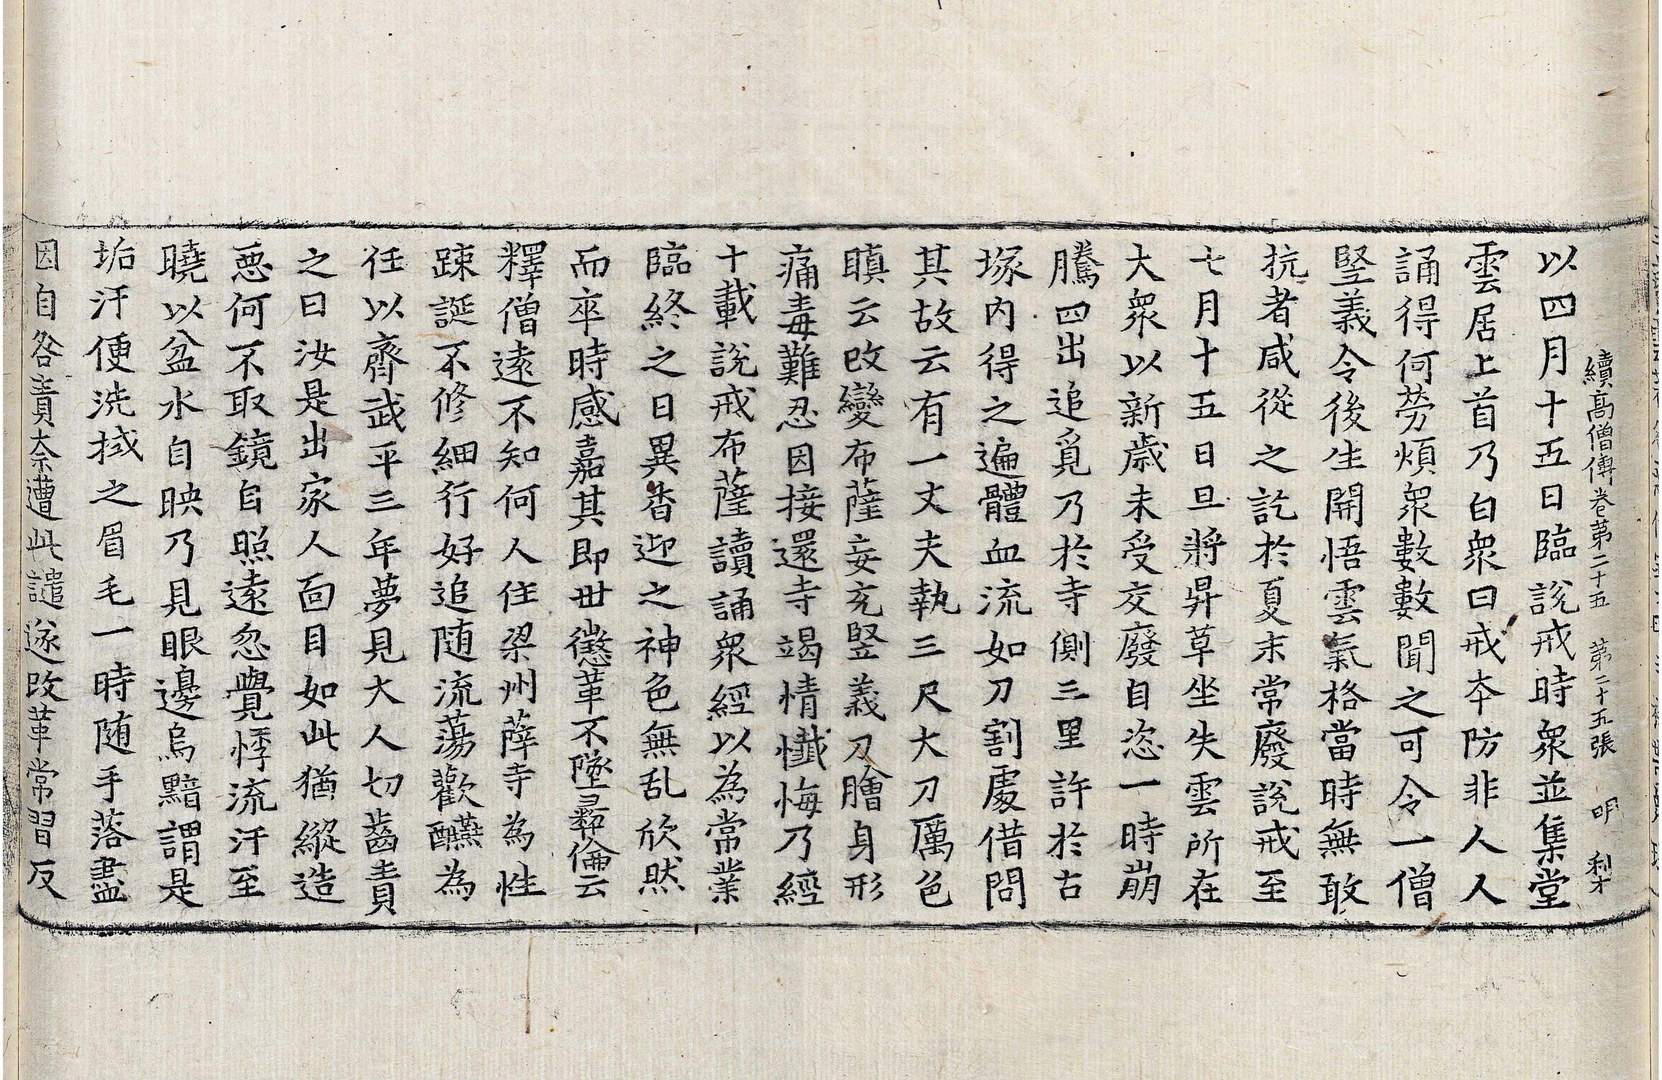 續高僧傳卷第二十五 第二十五張 明 利才
以四月十五日臨說戒時衆並集堂
雲居上首乃白衆曰戒本防非人人
誦得何勞煩衆數數聞之可令一僧
竪義令後生開悟雲氣格當時無敢
抗者咸從之訖於夏末常廢說戒至
七月十五日旦將昇草坐失雲所在
大衆以新歲未受交廢自恣一時崩
騰四出追覓乃於寺側三里許於古
塚内得之遍體血流如刀割處借問
其故云有一丈夫執三尺大刀厲色
瞋云改變布薩妄充竪義刀膾身形
痛毒難忍因接還寺竭情懺悔乃經
十載說戒布薩讀誦衆經以為常業
臨終之日異香迎之神色無乱欣然
而卒時感嘉其即世懲革不墜彝倫云
釋僧遠不知何人住梁州薛寺為性
踈誕不修細行好追随流蕩歡醼為
任以齊武平三年夢見大人切齒責
之曰汝是出家人面目如此猶縱造
惡何不取鏡自照遠忽覺悸流汗至
曉以盆水自映乃見眼邊烏黯謂是
垢汗便洗拭之眉毛一時随手落盡
因自咎責奈遭此譴遂改革常習反